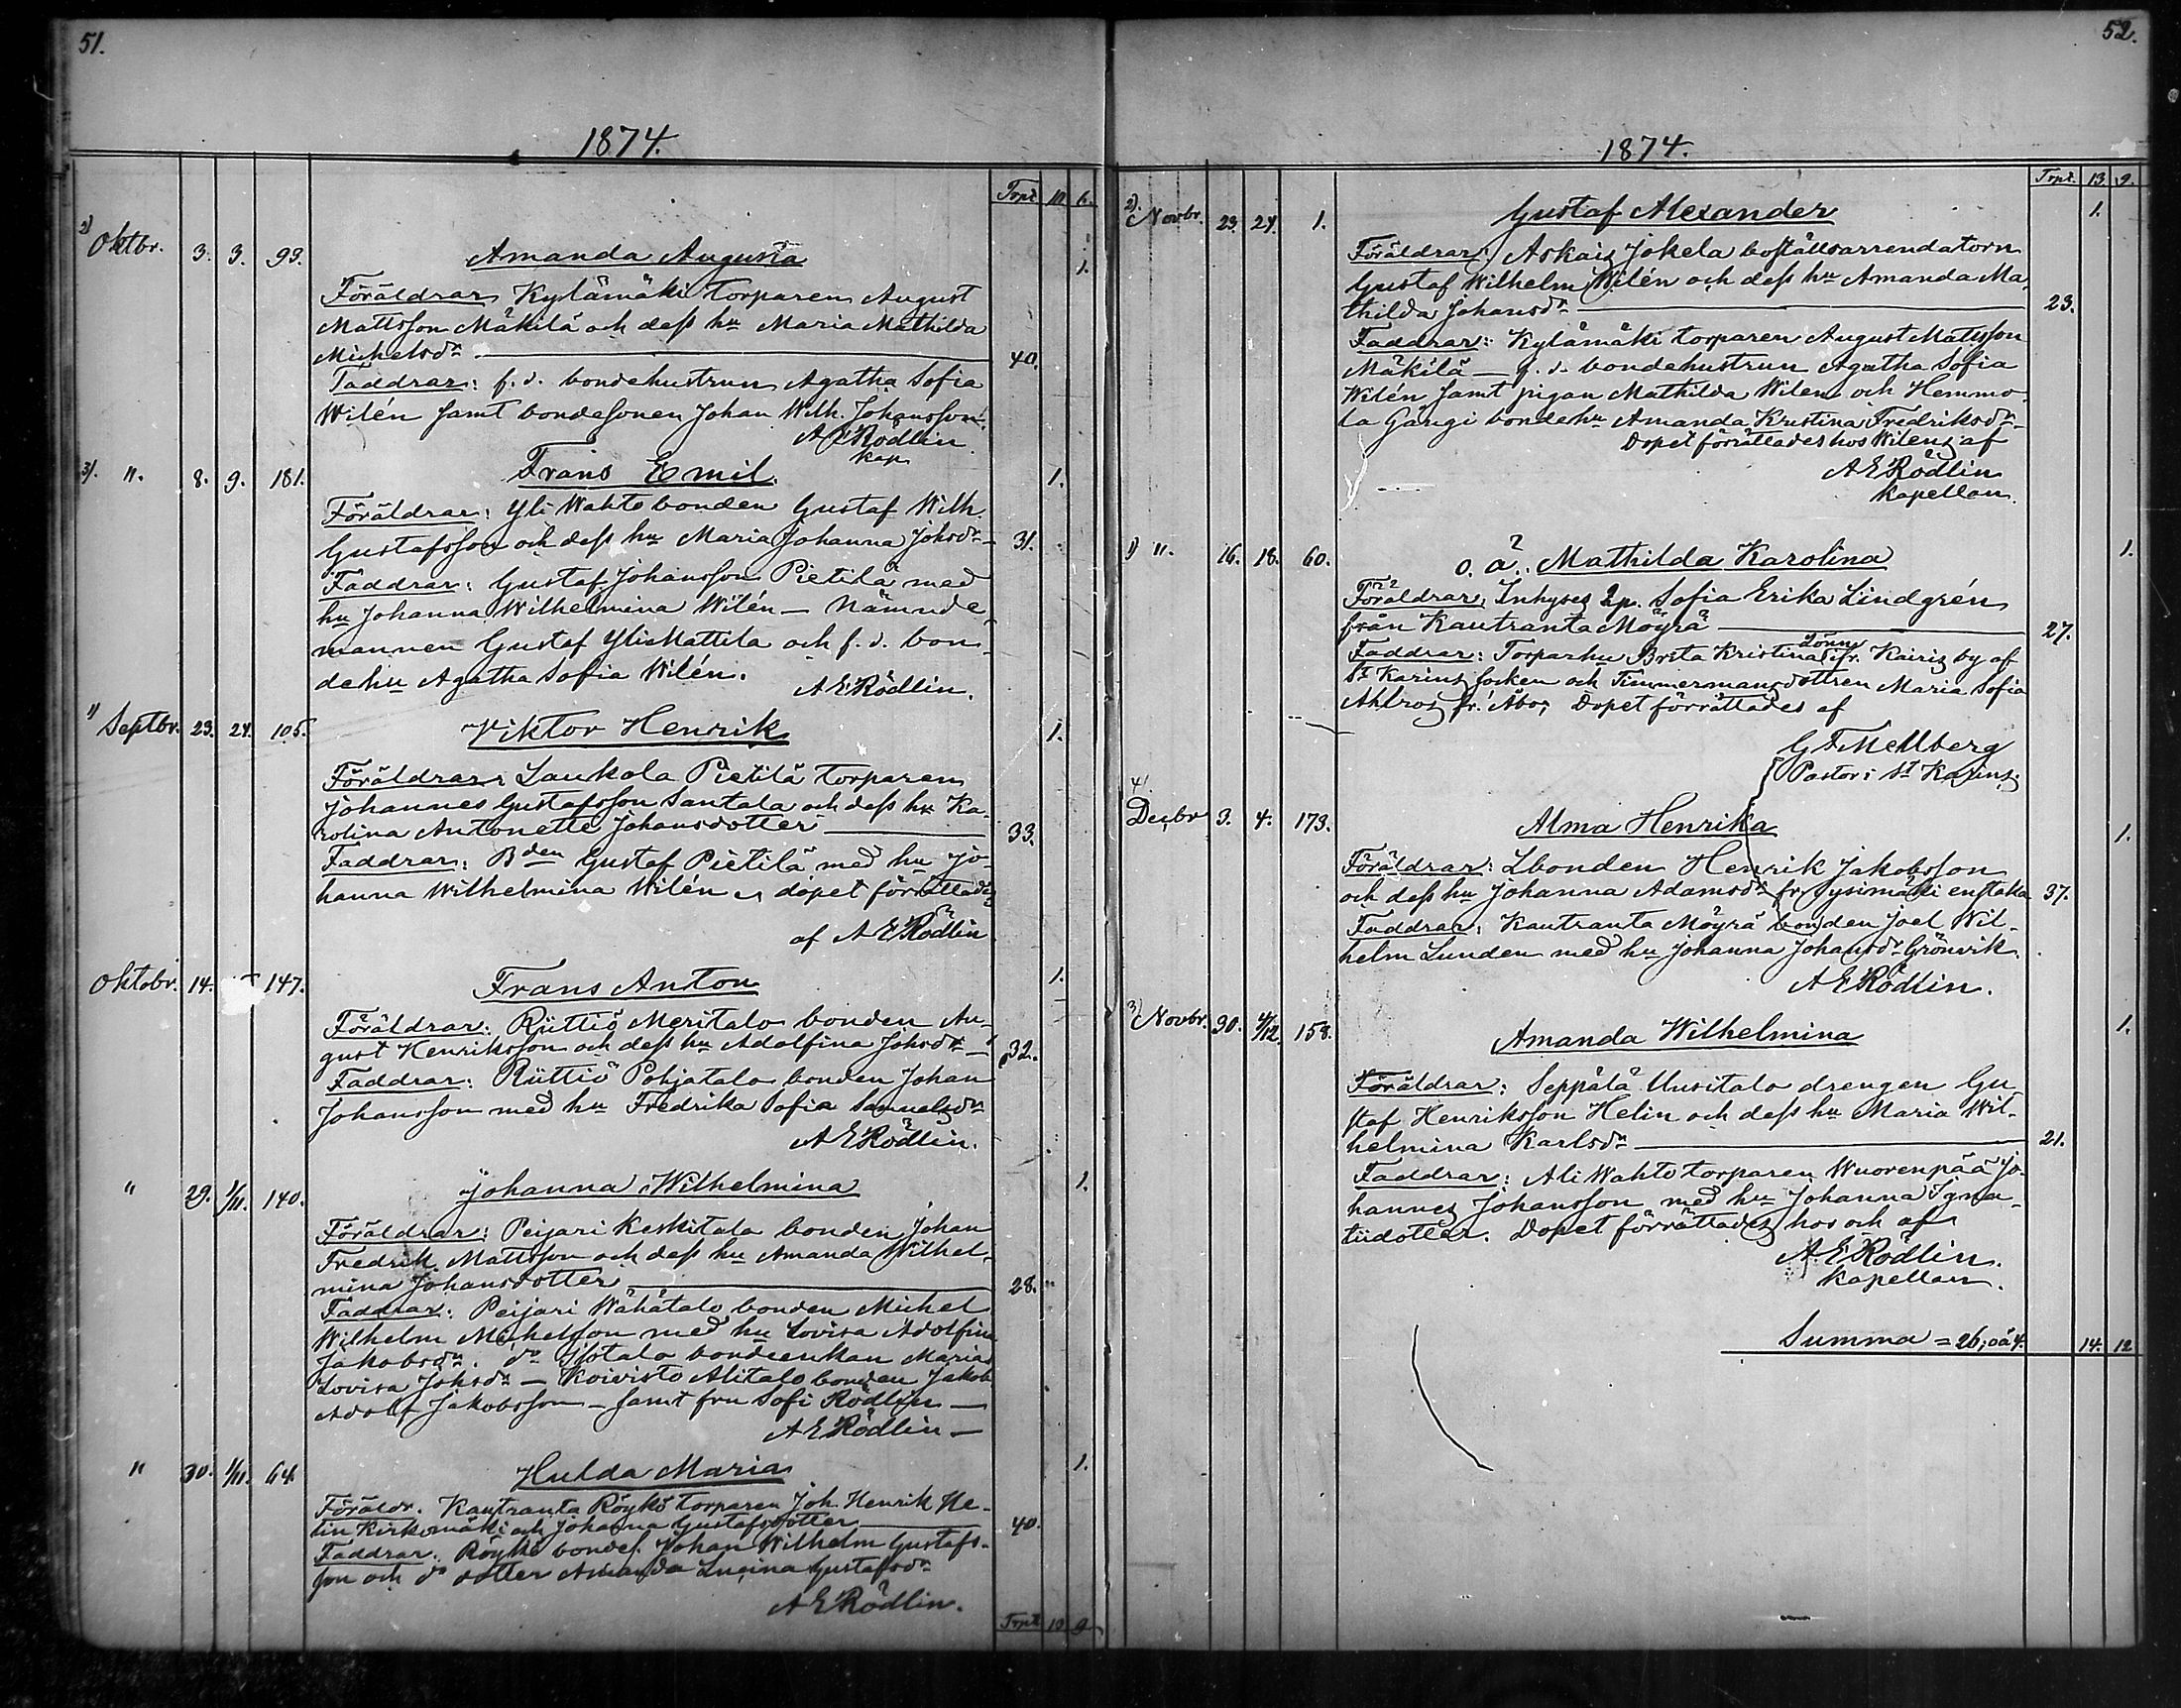 51.
1874.
Trpt 10 6.
2) Oktbr. 3. 3. 93. Amanda Augusta 1.
Föräldrar Kylämäki torparen August
Mattsson Mäkilä och dess hu Maria Mathilda
Michelsdr 40.
Faddrar: f. d. bondehustrun Agatha Sofia
Wilén samt bondesonen Johan Wilh. Johansson.
A E Rödlin
kap
3). ". 8. 9. 181. Frans Emil. 1.
Föräldrar: Yli Wahto bonden Gustaf Wilh.
Gustafsson och dess hu Maria Johanna Johsdr 31.
Faddrar: Gustaf Johansson Pietilä med
hu Johanna Wilhelmina Wilén — Nämnde-
mannen Gustaf Yli Mattila och f. d. bon-
dehu Agatha Sofia Wilén.
A E Rödlin.
1) Septbr. 23. 24. 105. Viktor Henrik 1.
Föräldrar: Laukola Pietilä torparen
Johannes Gustafsson Santala och dess hu Ka-
rolina Antonette Johansdotter 33.
Faddrar: Bden Gustaf Pietilä med hu Jo-
hanna Wilhelmina Wilén, dopet förrättades
af A E Rödlin
Oktobr. 14. 147. Frans Anton 1.
Föräldrar: Rüttiö Meritalo bonden Au-
gust Henriksson och dess hu Adolfina Johsdr — 32.
Faddrar: Rüttiö Pohjatalo bonden Johan
Johansson med hu Fredrika Sofia Samuelsdr
A E Rödlin.
" 29. 1/11. 140. Johanna Wilhelmina 1.
Föräldrar: Peijari Keskitalo bonden Johan
Fredrik Mattsson och dess hu Amanda Wilhel-
mina Johansdotter 28.
Faddrar: Peijari Wähätalo bonden Michel
Wilhelm Michelsson med hu Lovisa Adolfina
Jakobsdr. do Isotalo bondeenkan Maria
Lovisa Johsdr — Koivisto Alitalo bonden Jakob
Adolf Jakobsson — samt fru Sofi Rödlin —
A E Rödlin —
" 30. 1/11. 64. Hulda Maria 1.
Föräldr. Kautranta Röykö torparen Joh. Henrik He-
lin Kirkomäki och Johanna Gustafsdotter 40.
Faddrar. Röykö bondes. Johan Wilhelm Gustafs-
son och do dotter Amanda Lucina Gustafsdr
A E Rödlin.
Trpt 10 9
52.
1874.
Trpt. 13 9.
2). Novbr. 23. 24. 1. Gustaf Alexander 1.
Föräldrar: Askais Jokela boställsarrendatorn
Gustaf Wilhelm Wilén och dess hu Amanda Ma-
thilda Johansdr 23.
Faddrar: Kylämäki torparen August Mattsson
Mäkilä — f. d. bondehustrun Agatha Sofia
Wilén samt pigan Mathilda Wilen och Hemmo-
la Gångi bondehu Amanda Kristina Fredriksdr —
Dopet förrättades hos Wilens af
A E Rödlin
Kapellan.
1) ". 16. 18. 60. o. ä. Mathilda Karolina 1.
Föräldrar: Inhyses qp. Sofia Erika Lindgrén
från Kautranta Möyrä 27.
Faddrar: Torparhu Brita Kristina Lönn fr. Kairis by af
St Karins socken och Timmermansdottren Maria Sofia
Ahlros fr. Åbo; Dopet förrättades af
G F Mellberg
Pastor i St Karins
4). Decbr 3. 4. 173. Alma Henrika 1.
Föräldrar: Lbonden Henrik Jakobsson
och dess hu Johanna Adamsdr fr. Sysimäki enstaka 37.
Faddrar: Kautranta Möyrä bonden Joel Wil-
helm Lunden med hu Johanna Johansdr Grönvik.
A E Rödlin.
3) Novbr. 30. 4/12. 158. Amanda Wilhelmina 1.
Föräldrar: Seppälä Uusitalo drengen Gu-
staf Henriksson Helin och dess hu Maria Wil-
helmina Karlsdr 21.
Faddrar: Ali Wahto torparen Wuorenpää Jo-
hannes Johansson med hu Johanna Igna-
tiidotter. Dopet förrättades hos och af
A E Rödlin.
Kapellan.
Summa = 26; oä 4. 14. 12